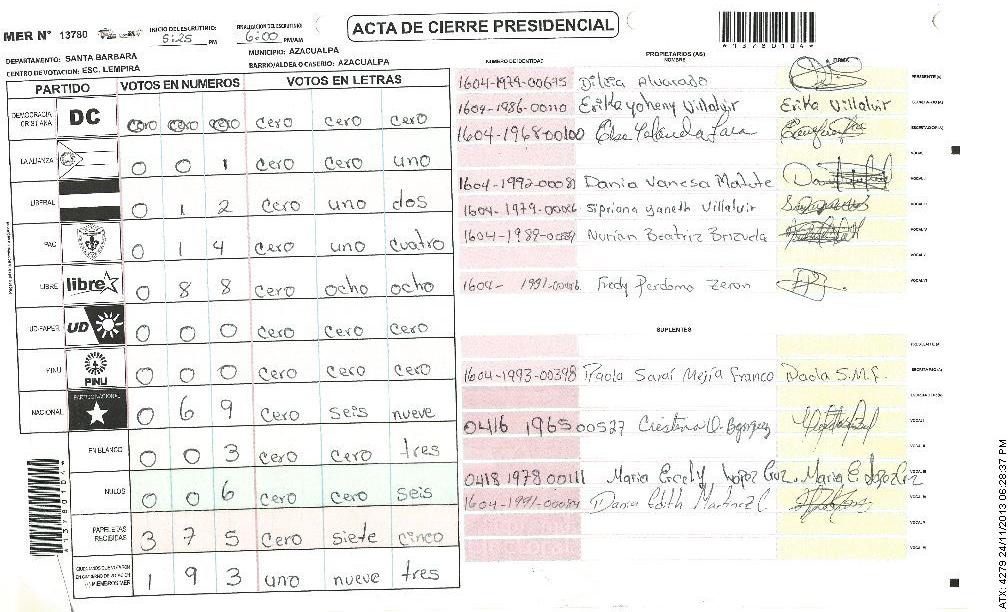 ACTA DE CIERRE PRESIDENCIAL
MER N° 13780
INICIO DEL ESCRUTINIO: 5:25 PM
FINALIZACION DEL ESCRUTINIO: 6:00 PM/AM
*13780104*
DEPARTAMENTO: SANTA BARBARA
MUNICIPIO: AZACUALPA
CENTRO DE VOTACION: ESC. LEMPIRA
BARRIO/ALDEA O CASERIO: AZACUALPA
PARTIDO VOTOS EN NUMEROS VOTOS EN LETRAS
DEMOCRACIA CRISTIANA DC cero cero cero cero cero cero
LA ALIANZA 0 0 1 cero cero uno
LIBERAL 0 1 2 cero uno dos
PAC 0 1 4 cero uno cuatro
LIBRE libre 0 8 8 cero ocho ocho
UD-FAPER UD 0 0 0 cero cero cero
PINU PINU 0 0 0 cero cero cero
NACIONAL PARTIDO NACIONAL 0 6 9 cero seis nueve
EN BLANCO 0 0 3 cero cero tres
NULOS 0 0 6 cero cero seis
PAPELETAS RECIBIDAS 3 7 5 cero siete cinco
1 9 3 uno nueve tres
*13780104*
NUMERO DE IDENTIDAD PROPIETARIOS (AS) NOMBRE FIRMA
1604-1979-00675 Dilcia Alvarado PRESIDENTE(A)
1604-1986-00110 Erika yoheny Villalvir Erika Villalvir SECRETARIO(A)
1604-1968-00100 ESCRUTADOR(A)
VOCAL I
1604-1992-00081 Dania Vanesa Matute VOCAL II
Sipriana yaneth Villalvir VOCAL III
Nurian Beatriz Brizuela VOCAL IV
VOCAL V
Fredy Perdomo Zeron VOCAL VI
SUPLENTES
PRESIDENTE(A)
1604-1993-00398 Paola Saraí Mejía Franco Paola S.M.F. SECRETARIO(A)
ESCRUTADOR(A)
0416 1965 00527 Cristina VOCAL I
VOCAL II
0418 1978 00111 Maria Ercely Lopez Cruz Maria E Lopez Cruz VOCAL III
1604-1991-00084 Dania Edith Martinez C VOCAL IV
VOCAL V
VOCAL VI
ATX: 4279 24/11/2013 06:28:37 PM